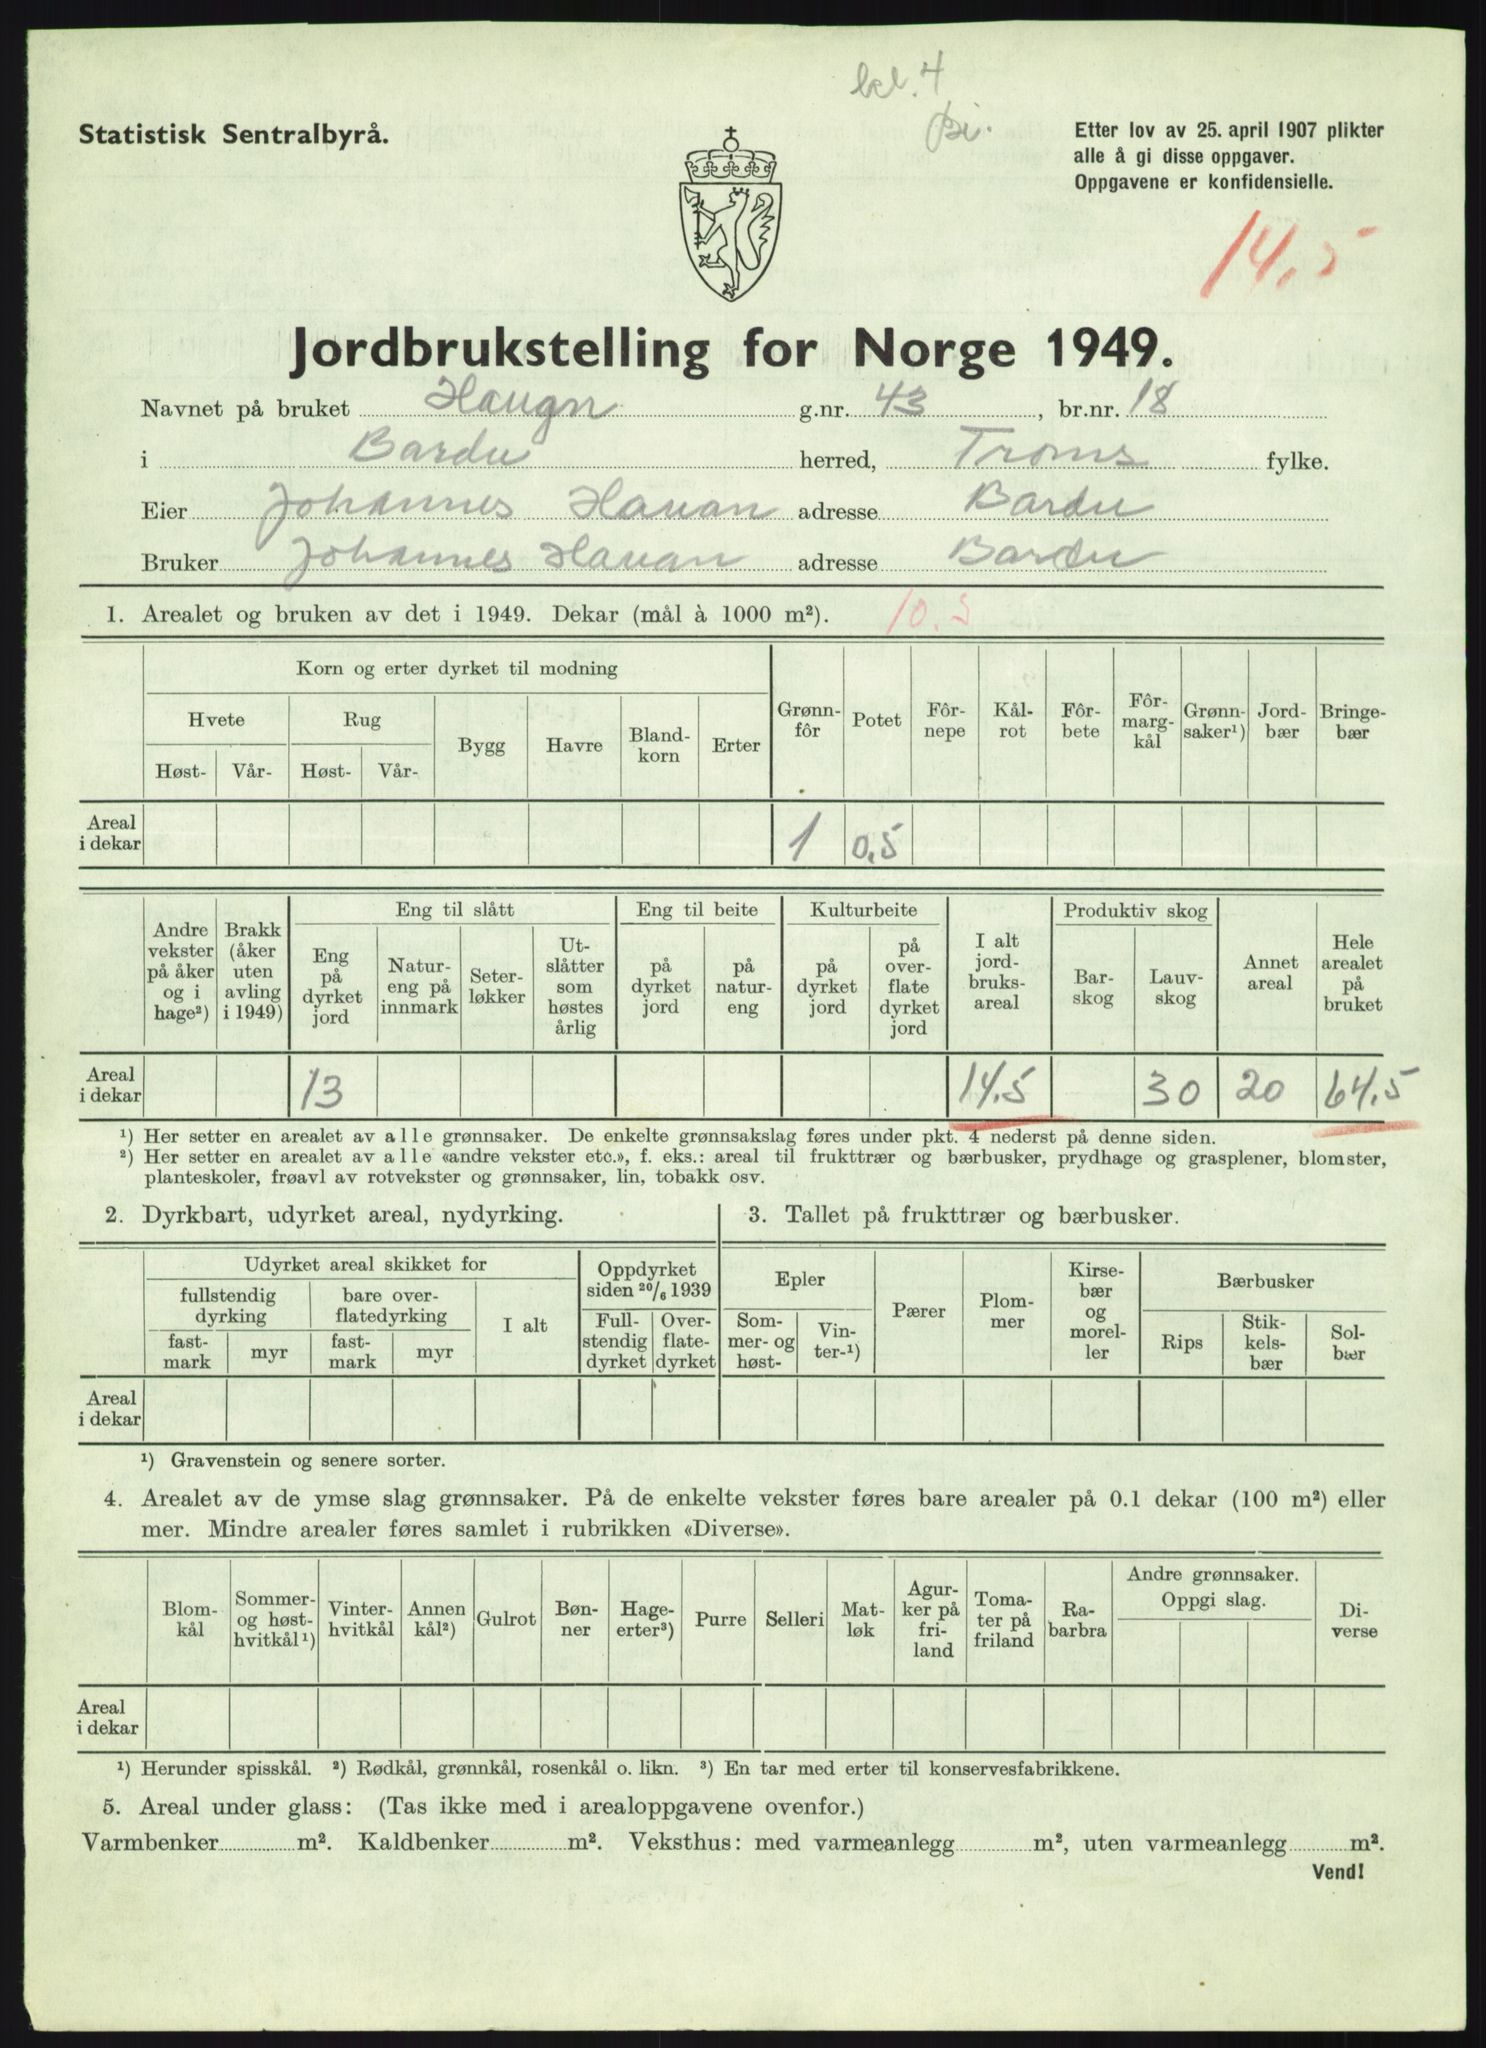 bel. 4
Statistisk Sentralbyrå.
Etter lov av 25. april 1907 plikter
alle å gi disse oppgaver.
Oppgavene er konfidensielle.
14,5
Jordbrukstelling for Norge 1949.
Navnet på bruket Haugn g.nr. 43, br.nr. 18
i Bardu herred, Troms fylke.
Eier Johannes Hauan adresse Bardu
Bruker Johannes Hauan adresse Bardu
1. Arealet og bruken av det i 1949. Dekar (mål à 1000 m²). 10.5
Korn og erter dyrket til modning
Hvete Rug Bygg Havre Bland-korn Erter Grønn-fôr Potet Fôr-nepe Kål-rot Fôr-bete Fôr-marg-kål Grønn-saker¹) Jord-bær Bringe-bær
Høst- Vår- Høst- Vår-
Areal i dekar 1 0,5
Andre vekster på åker og i hage²) Brakk (åker uten avling i 1949) Eng til slått Eng til beite Kulturbeite I alt jord-bruks-areal Produktiv skog Annet areal Hele arealet på bruket
Eng på dyrket jord Natur-eng på innmark Seter-løkker Ut-slåtter som høstes årlig på dyrket jord på natur-eng på dyrket jord på over-flate dyrket jord Bar-skog Lauv-skog
Areal i dekar 13 14,5 30 20 64,5
¹) Her setter en arealet av alle grønnsaker. De enkelte grønnsakslag føres under pkt. 4 nederst på denne siden.
²) Her setter en arealet av alle «andre vekster etc.», f. eks.: areal til frukttrær og bærbusker, prydhage og grasplener, blomster,
planteskoler, frøavl av rotvekster og grønnsaker, lin, tobakk osv.
2. Dyrkbart, udyrket areal, nydyrking.
Udyrket areal skikket for Oppdyrket siden 20/6 1939
fullstendig dyrking bare over-flatedyrking I alt Full-stendig dyrket Over-flate-dyrket
fast-mark myr fast-mark myr
Areal i dekar
3. Tallet på frukttrær og bærbusker.
Epler Pærer Plom-mer Kirse-bær og morel-ler Bærbusker
Som-mer- og høst- Vin-ter-¹) Rips Stik-kels-bær Sol-bær
¹) Gravenstein og senere sorter.
4. Arealet av de ymse slag grønnsaker. På de enkelte vekster føres bare arealer på 0.1 dekar (100 m²) eller
mer. Mindre arealer føres samlet i rubrikken «Diverse».
Blom-kål Sommer- og høst-hvitkål¹) Vinter-hvitkål Annen kål²) Gulrot Bøn-ner Hage-erter³) Purre Selleri Mat-løk Agur-ker på fri-land Toma-ter på friland Ra-barbra Andre grønnsaker. Oppgi slag. Di-verse
Areal i dekar
¹) Herunder spisskål. ²) Rødkål, grønnkål, rosenkål o. likn. ³) En tar med erter til konservesfabrikkene.
5. Areal under glass: (Tas ikke med i arealoppgavene ovenfor.)
Varmbenker m². Kaldbenker m². Veksthus: med varmeanlegg m², uten varmeanlegg m².
Vend!